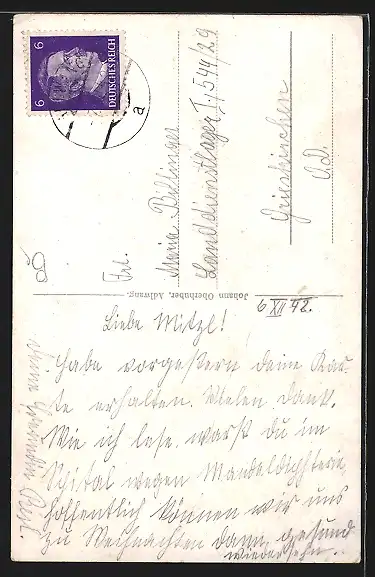 6
6
DEUTSCHES REICH
a
Frl.
Maria Billinger
Landdienstlager I/544/29
Grieskirchen
OD.
Johann Oberhuber, Adlwang.
6 XII 42.
Liebe Mitzl!
Habe vorgestern deine Kar-
te erhalten. Vielen dank.
Wie ich lese warst du im
Spital wegen Mandeldiphtterie,
hoffentlich können wir uns
zu Weihnachten dann gesund
wiedersehn.